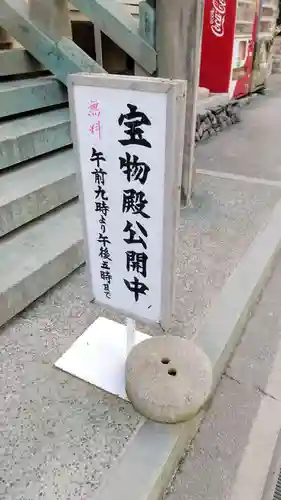 無料
宝物殿公開中
午前九時より午後五時まで
Coca-Cola